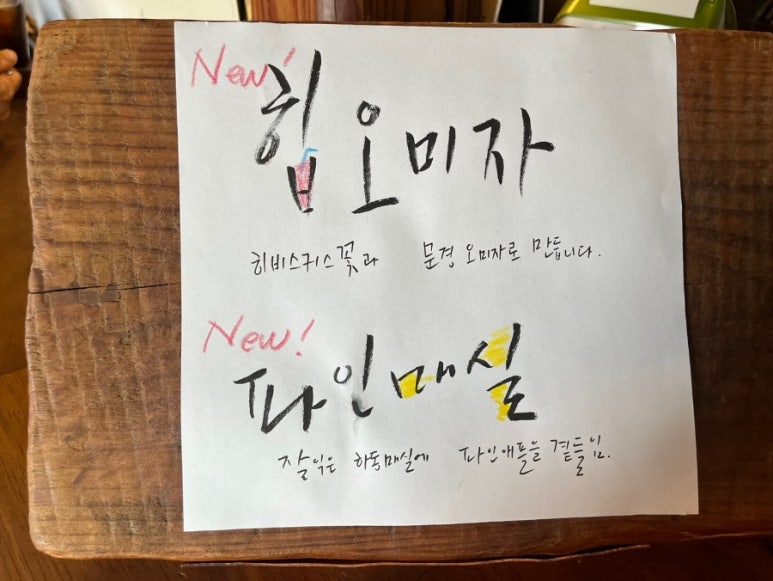 New!
힙 오미자
히비스커스꽃과 문경 오미자로 만듭니다.
New!
파인매실
잘익은 하동매실에 파인애플을 곁들임.